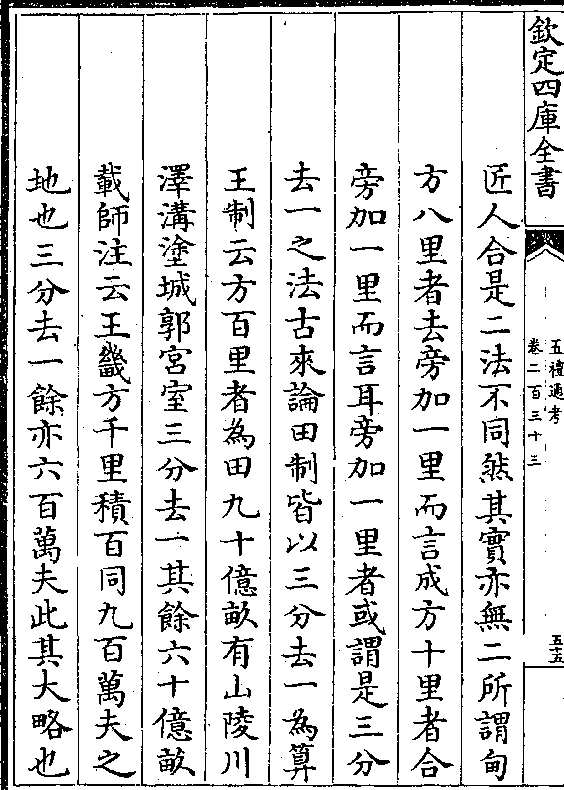 欽定四庫全書
五禮通考
卷二百三十三
五五
匠人合是二法不同然其實亦無二所謂甸
方八里者去旁加一里而言成方十里者合
旁加一里而言耳旁加一里者或謂是三分
去一之法古來論田制皆以三分去一為算
王制云方百里者為田九十億畝有山陵川
澤溝塗城郭宮室三分去一其餘六十億畝
載師注云王畿方千里積百同九百萬夫之
地也三分去一餘亦六百萬夫此其大略也